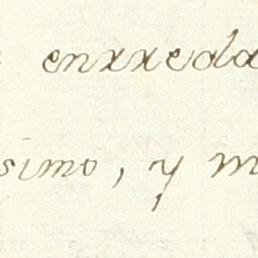 enrreda
simo, y m